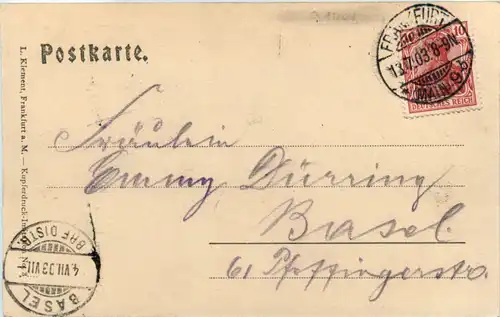 Postkarte.
FRANKFURT
13.7.03.8-9N.
(MAIN) 9
10
DEUTSCHES REICH
L. Klement, Frankfurt a. M. — Kupferdruck-
Fräulein
Emmy Dürring
Basel.
61 Pfeffingerstr.
BRF. DISTR.
4.VII.03.VII
BASEL